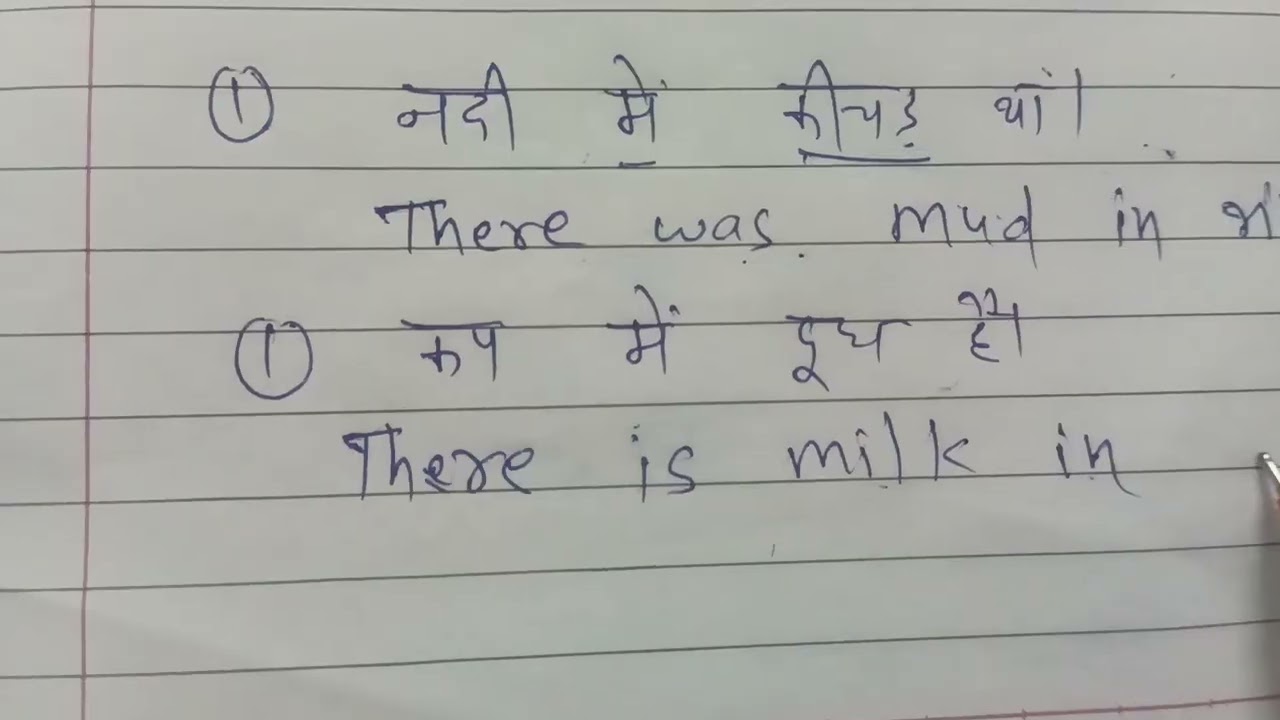 ① नदी में कीचड़ थां।
There was mud in
① कप में दूध है।
There is milk in